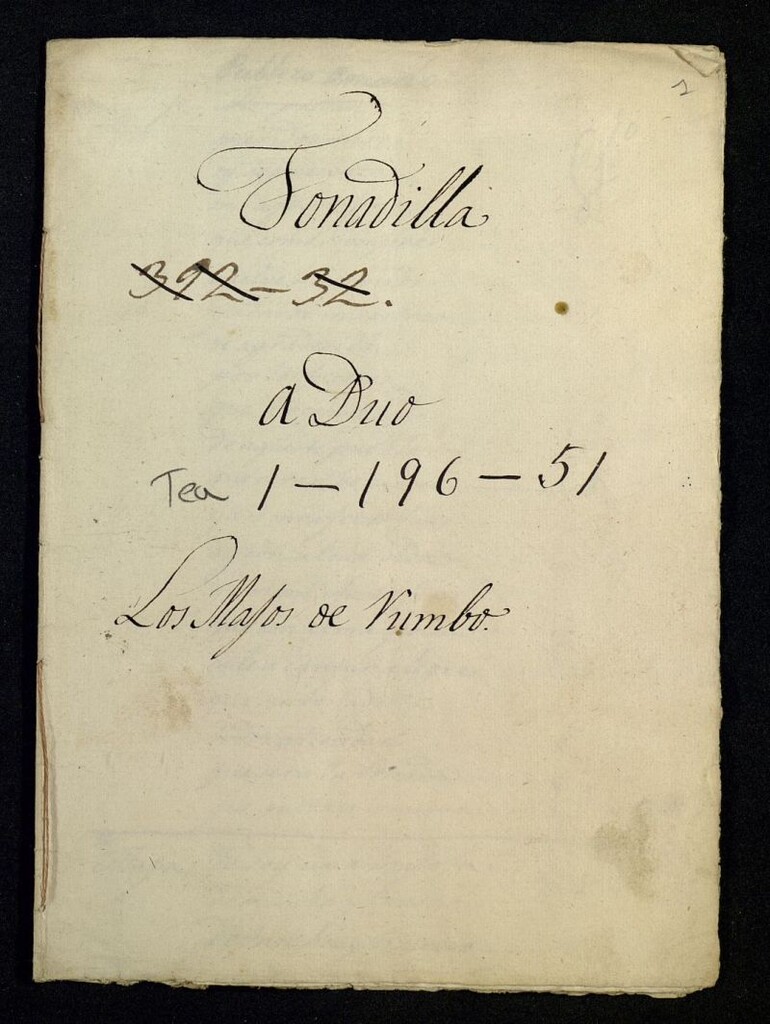 Tonadilla
392-32.
a Duo
Tea 1-196-51
Los Majos de Rumbo.